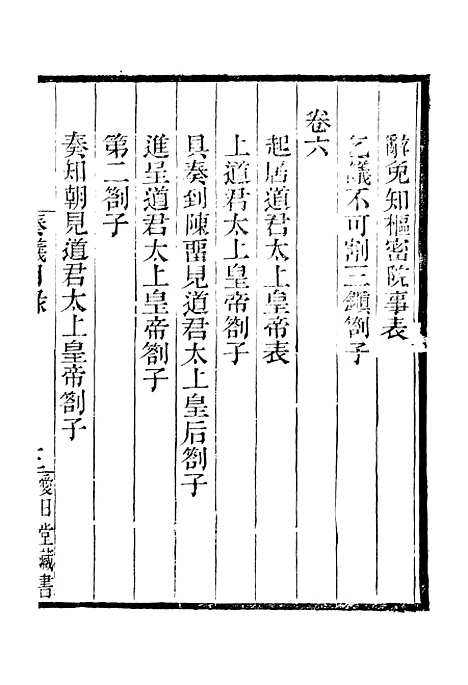 辭免知樞密院事表
乞議不可割三鎮劄子
卷六
起居道君太上皇帝表
上道君太上皇帝劄子
具奏到陳留見道君太上皇后劄子
進呈道君太上皇帝劄子
第二劄子
奏知朝見道君太上皇帝劄子
奏議目錄
愛日堂藏書